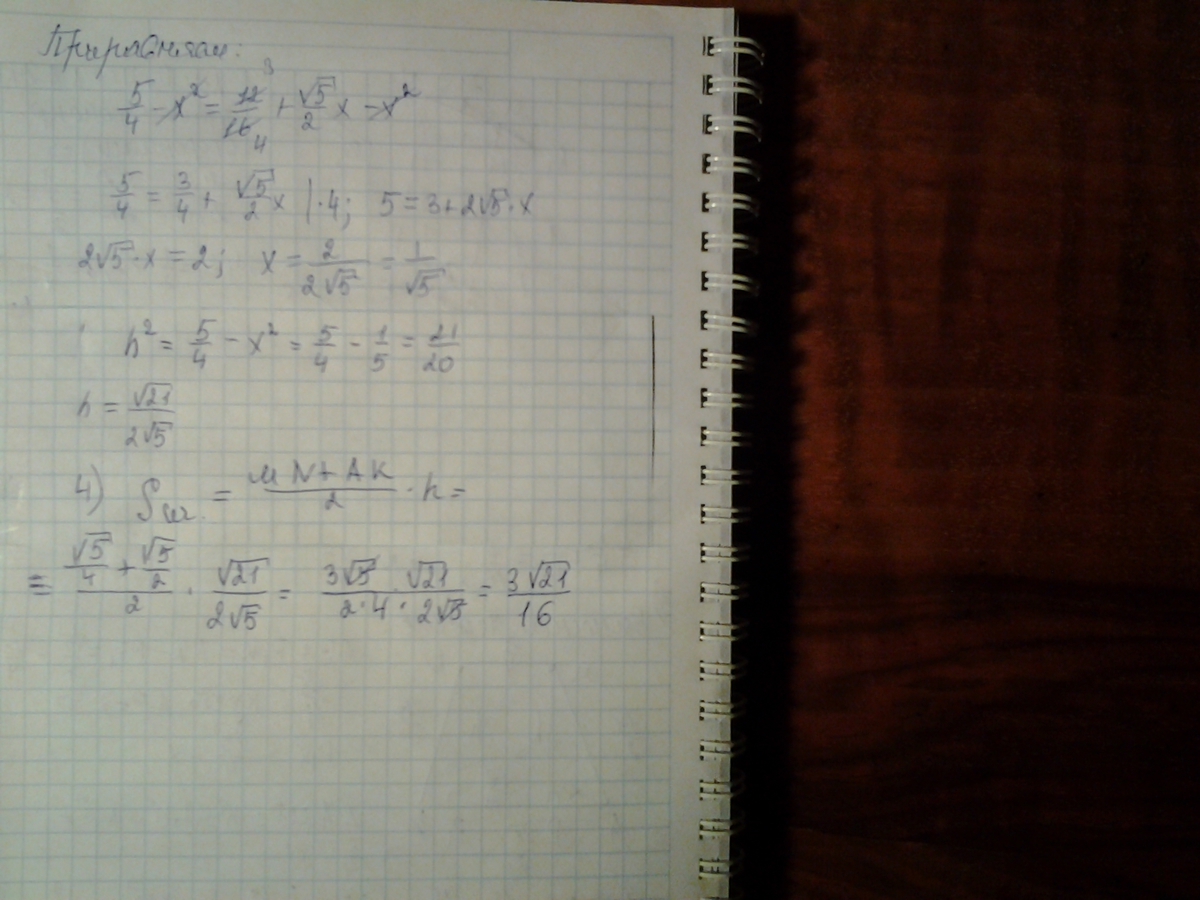 Приравняем:
5/4 - x² = 12/16 + √5/2 x - x²
3
4
5/4 = 3/4 + √5/2 x | · 4; 5 = 3 + 2√5 · x
2√5 · x = 2; x = 2/(2√5) = 1/√5
h² = 5/4 - x² = 5/4 - 1/5 = 21/20
h = √21/(2√5)
4) Sсеч. = (MN + AK)/2 · h =
= (√5/4 + √5/2)/2 · √21/(2√5) = (3√5 · √21)/(2 · 4 · 2√5) = 3√21/16